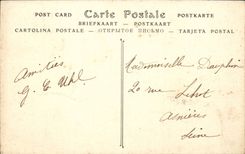 POST CARD Carte Postale POSTKARTE
BRIEFKAART — POSTKAART
CARTOLINA POSTALE — ОТКРЫТОЕ ПИСЬМО — TARJETA POSTAL
Amitiés
G. E. Uhl
Mademoiselle Dauphin
20 rue
Asnières
Seine